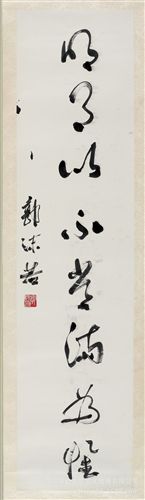 明月以不常滿為
郭沫若